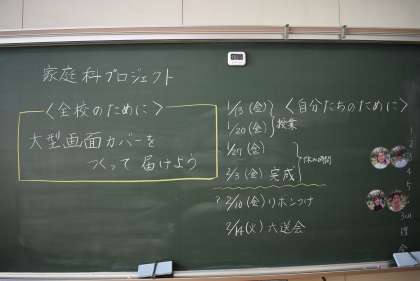 家庭科プロジェクト
〈全校のために〉
大型画面カバーを
つくって届けよう
〈自分たちのために〉
1/13(金)
1/20(金) 授業
1/27(金)
2/3(金)完成
休み時間
?2/10(金)リボンつけ
2/14(火)六送会